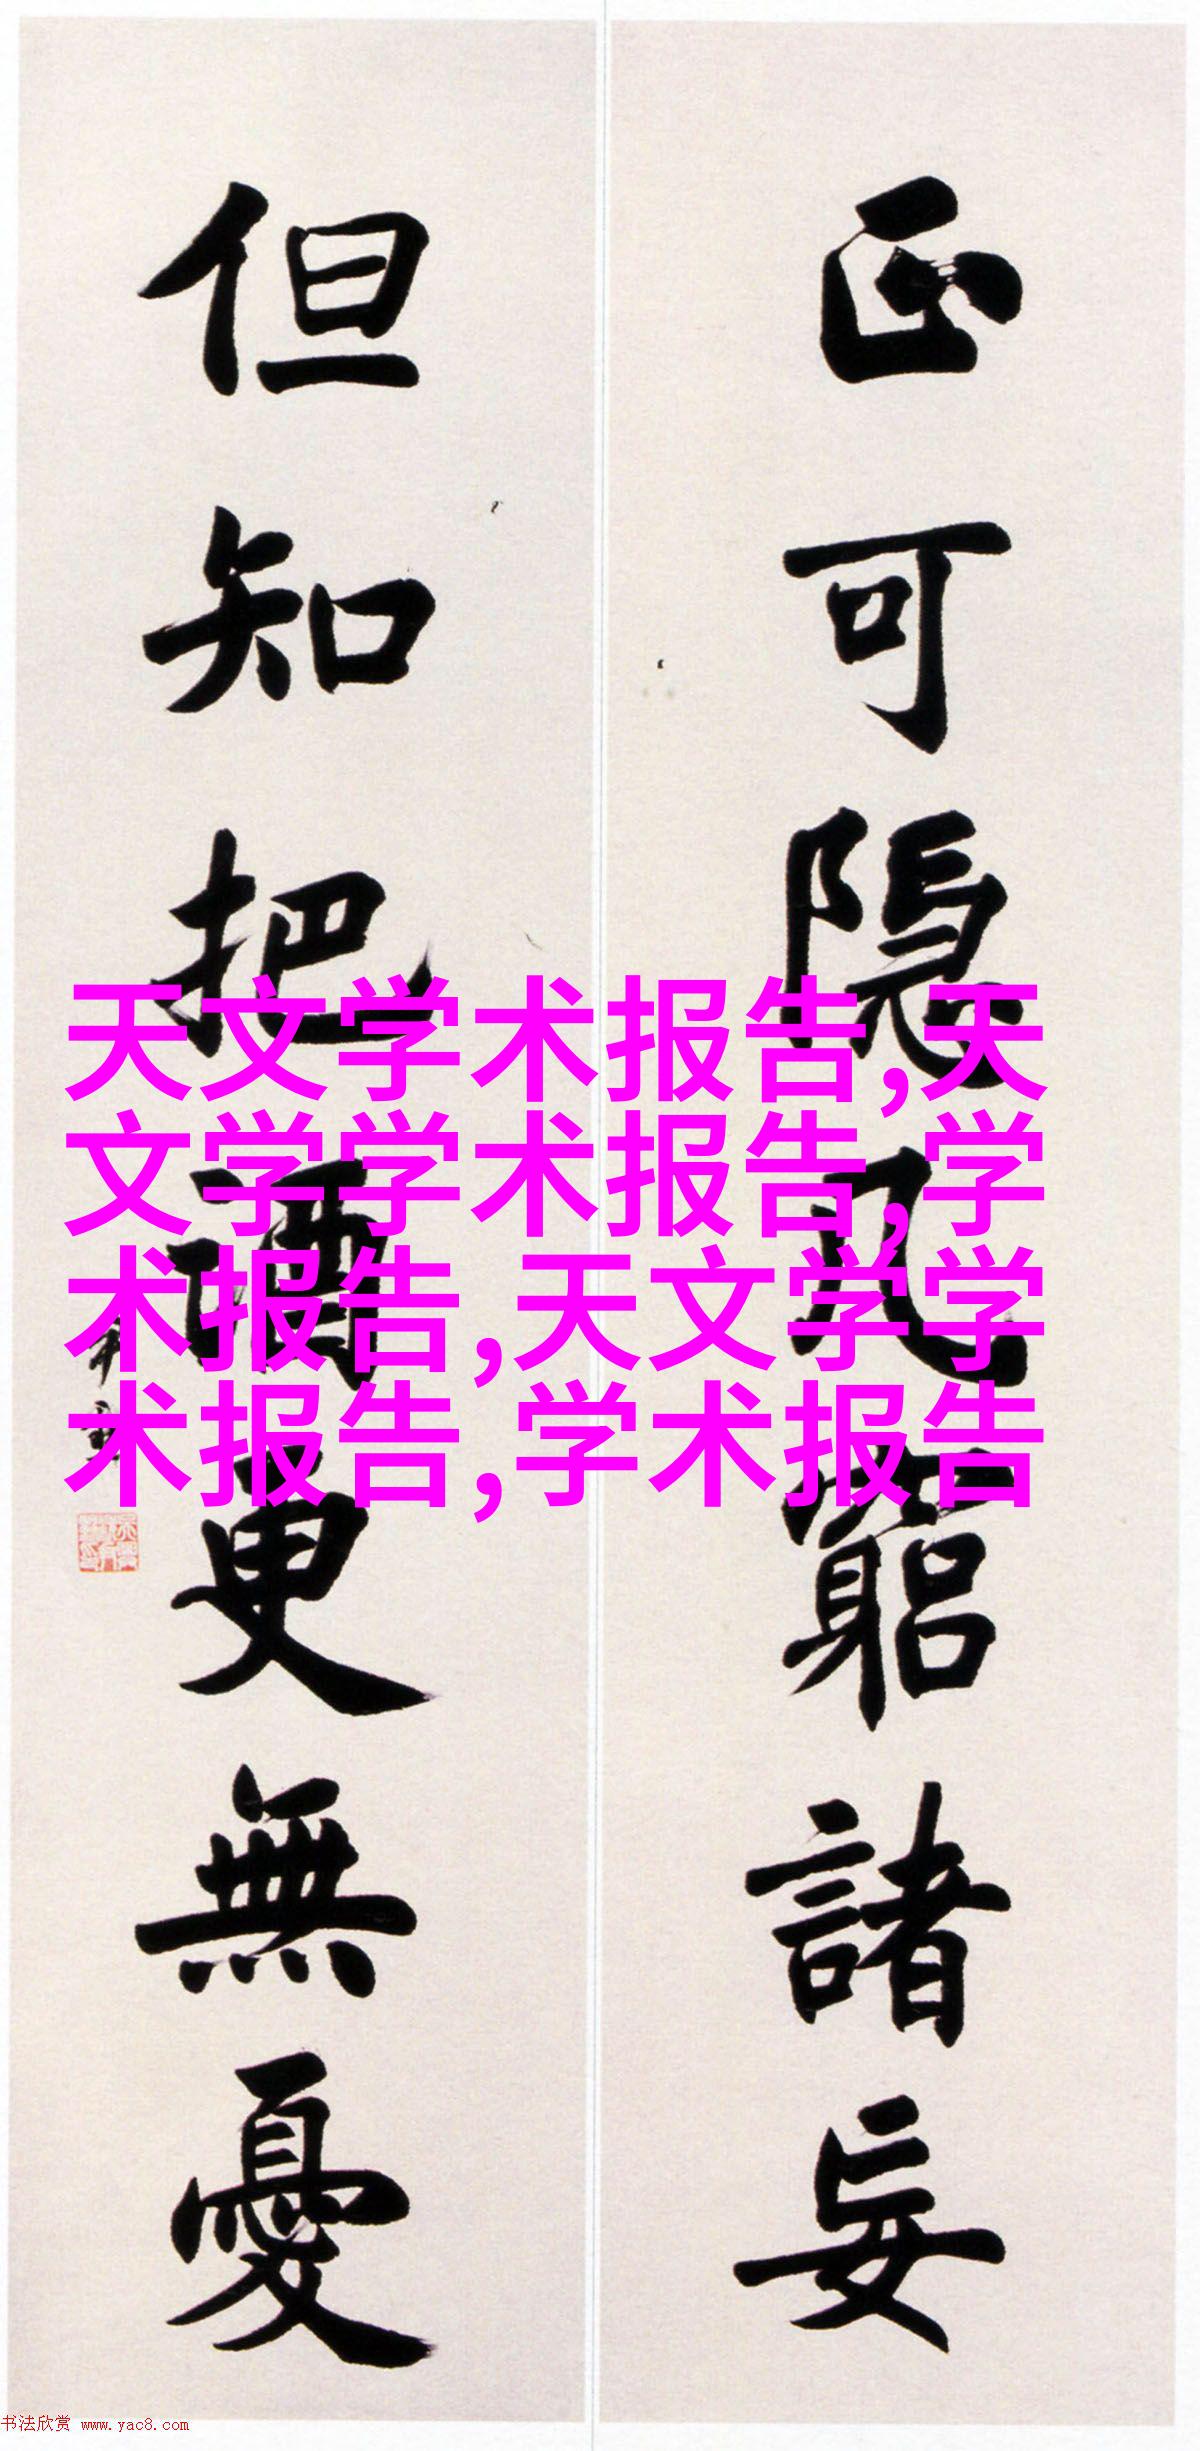 正可隱几窮諸妄
但知把酒更無憂
天文学术报告,天
文学学术报告,学
术报告,天文学学
术报告,学术报告
书法欣赏 www.yac8.com